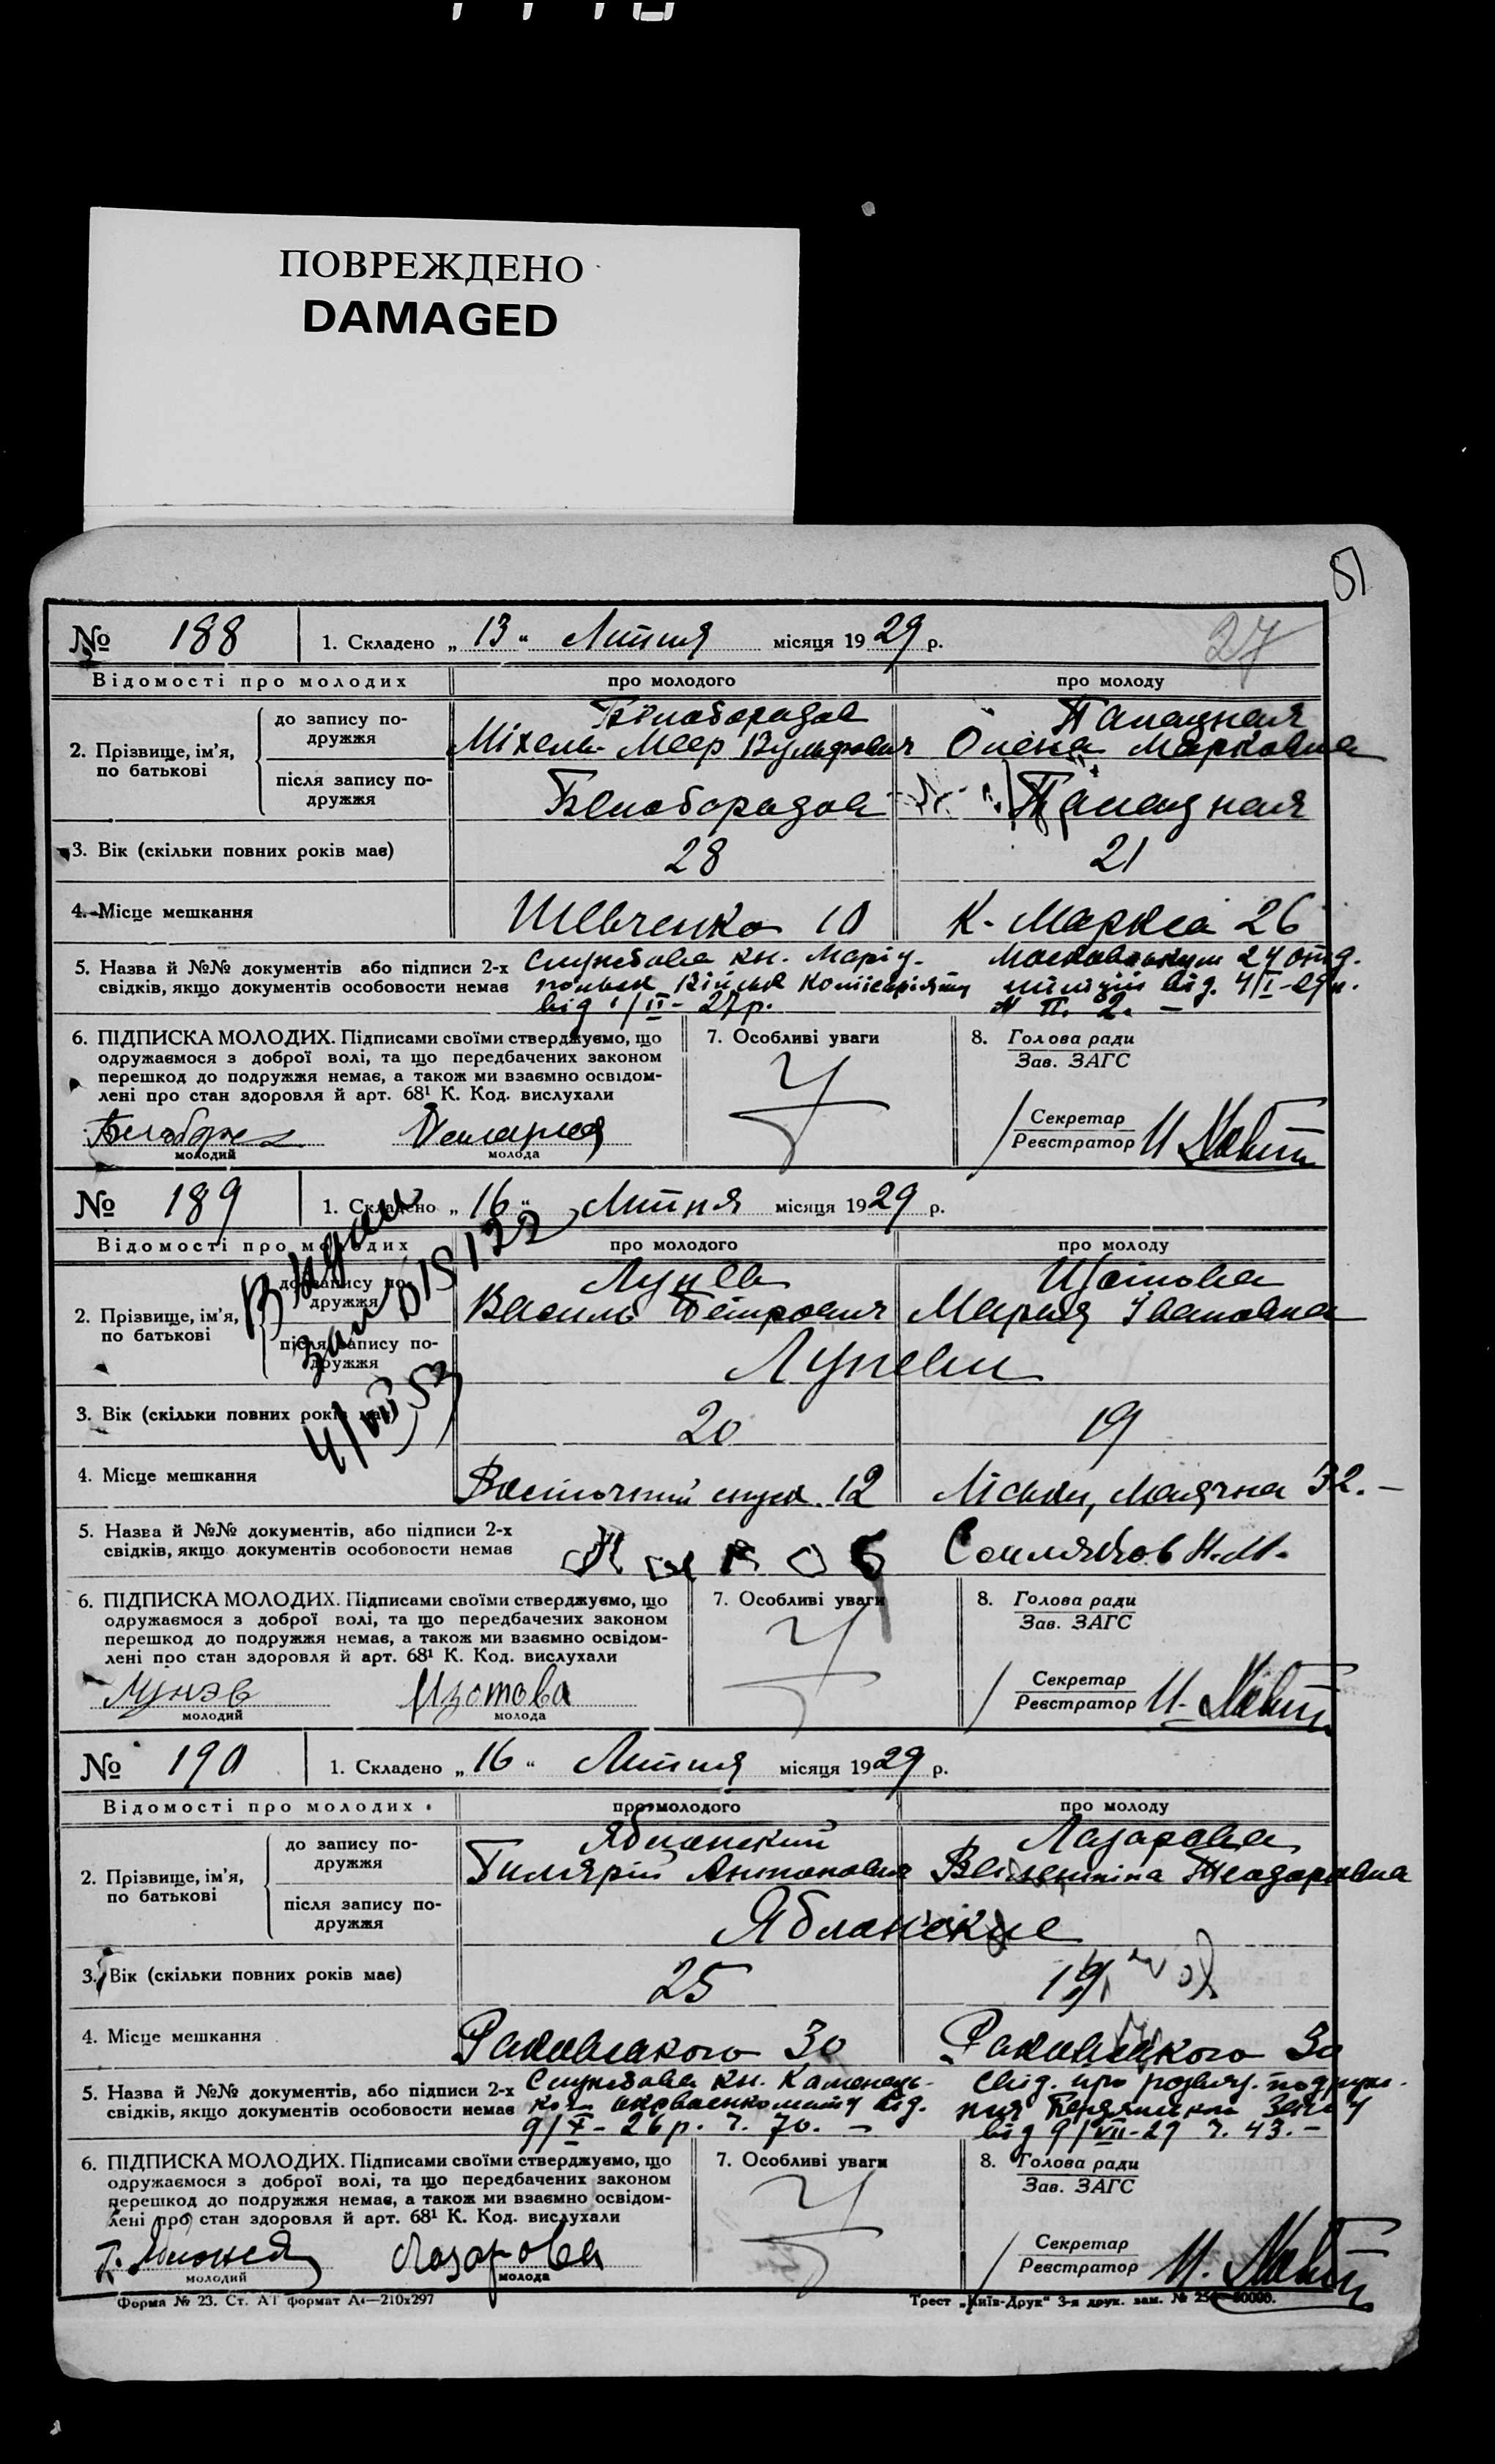 ПОВРЕЖДЕНО
DAMAGED
51
27
№ 188 1. Складено „ 13 “ Липня місяця 1929 р.
Відомості про молодих про молодого про молоду
2. Прізвище, ім’я, по батькові
до запису подружжя
Білобородов
Міхель-Меер Вульфович Олена Марковна
після запису подружжя
Білобородов
3. Вік (скільки повних років має) 28 21
4. Місце мешкання Шевченко 10 К. Маркса 26
5. Назва й №№ документів або підписи 2-х Службова кн. Маріу-
свідків, якщо документів особовости немає
від 1/II-27р. № П. 2. –
6. ПІДПИСКА МОЛОДИХ. Підписами своїми стверджуємо, що
одружаємося з доброї волі, та що передбачених законом
перешкод до подружжя немає, а також ми взаємно освідом-
лені про стан здоровля й арт. 68¹ К. Код. вислухали
7. Особливі уваги
8. Голова ради
Зав. ЗАГС
Секретар
Реєстратор
молодий молода
№ 189 1. Складено „ 16 “ Липня місяця 1929 р.
Відомості про молодих про молодого про молоду
Видан
4/VII 53
2. Прізвище, ім’я, по батькові
до запису подружжя
Лунев Изотова
Василь Петрович Мария Ивановна
після запису подружжя
Луневы
3. Вік (скільки повних років має) 20 19
4. Місце мешкання Восточний спуск. 12 Ліски, Маячна 32. –
5. Назва й №№ документів, або підписи 2-х
свідків, якщо документів особовости немає
6. ПІДПИСКА МОЛОДИХ. Підписами своїми стверджуємо, що
одружаємося з доброї волі, та що передбачених законом
перешкод до подружжя немає, а також ми взаємно освідом-
лені про стан здоровля й арт. 68¹ К. Код. вислухали
7. Особливі уваги
8. Голова ради
Зав. ЗАГС
Секретар
Реєстратор
Лунэв Изотова
молодий молода
№ 190 1. Складено „ 16 “ Липня місяця 1929 р.
Відомості про молодих про молодого про молоду
2. Прізвище, ім’я, по батькові
до запису подружжя
Яблонский Лазарева
Антонович Валентина Теодоровна
після запису подружжя
Яблонские
3. Вік (скільки повних років має) 25 19
4. Місце мешкання Раковського 30 Раковського 30
5. Назва й №№ документів, або підписи 2-х Службова кн. Каменець- Свід. про розлуч. подруж-
свідків, якщо документів особовости немає кого окрвоенкомату від. ння Бердянськ. Загсу
9/X-26р. ч. 70. – від 9/VII-29 ч. 43. –
6. ПІДПИСКА МОЛОДИХ. Підписами своїми стверджуємо, що
одружаємося з доброї волі, та що передбачених законом
перешкод до подружжя немає, а також ми взаємно освідом-
лені про стан здоровля й арт. 68¹ К. Код. вислухали
7. Особливі уваги
8. Голова ради
Зав. ЗАГС
Секретар
Реєстратор
Лозарова
молодий молода
Форма № 23. Ст. АГ формат А4—210х297 Трест „Київ-Друк“ 3-я друк. зам. №